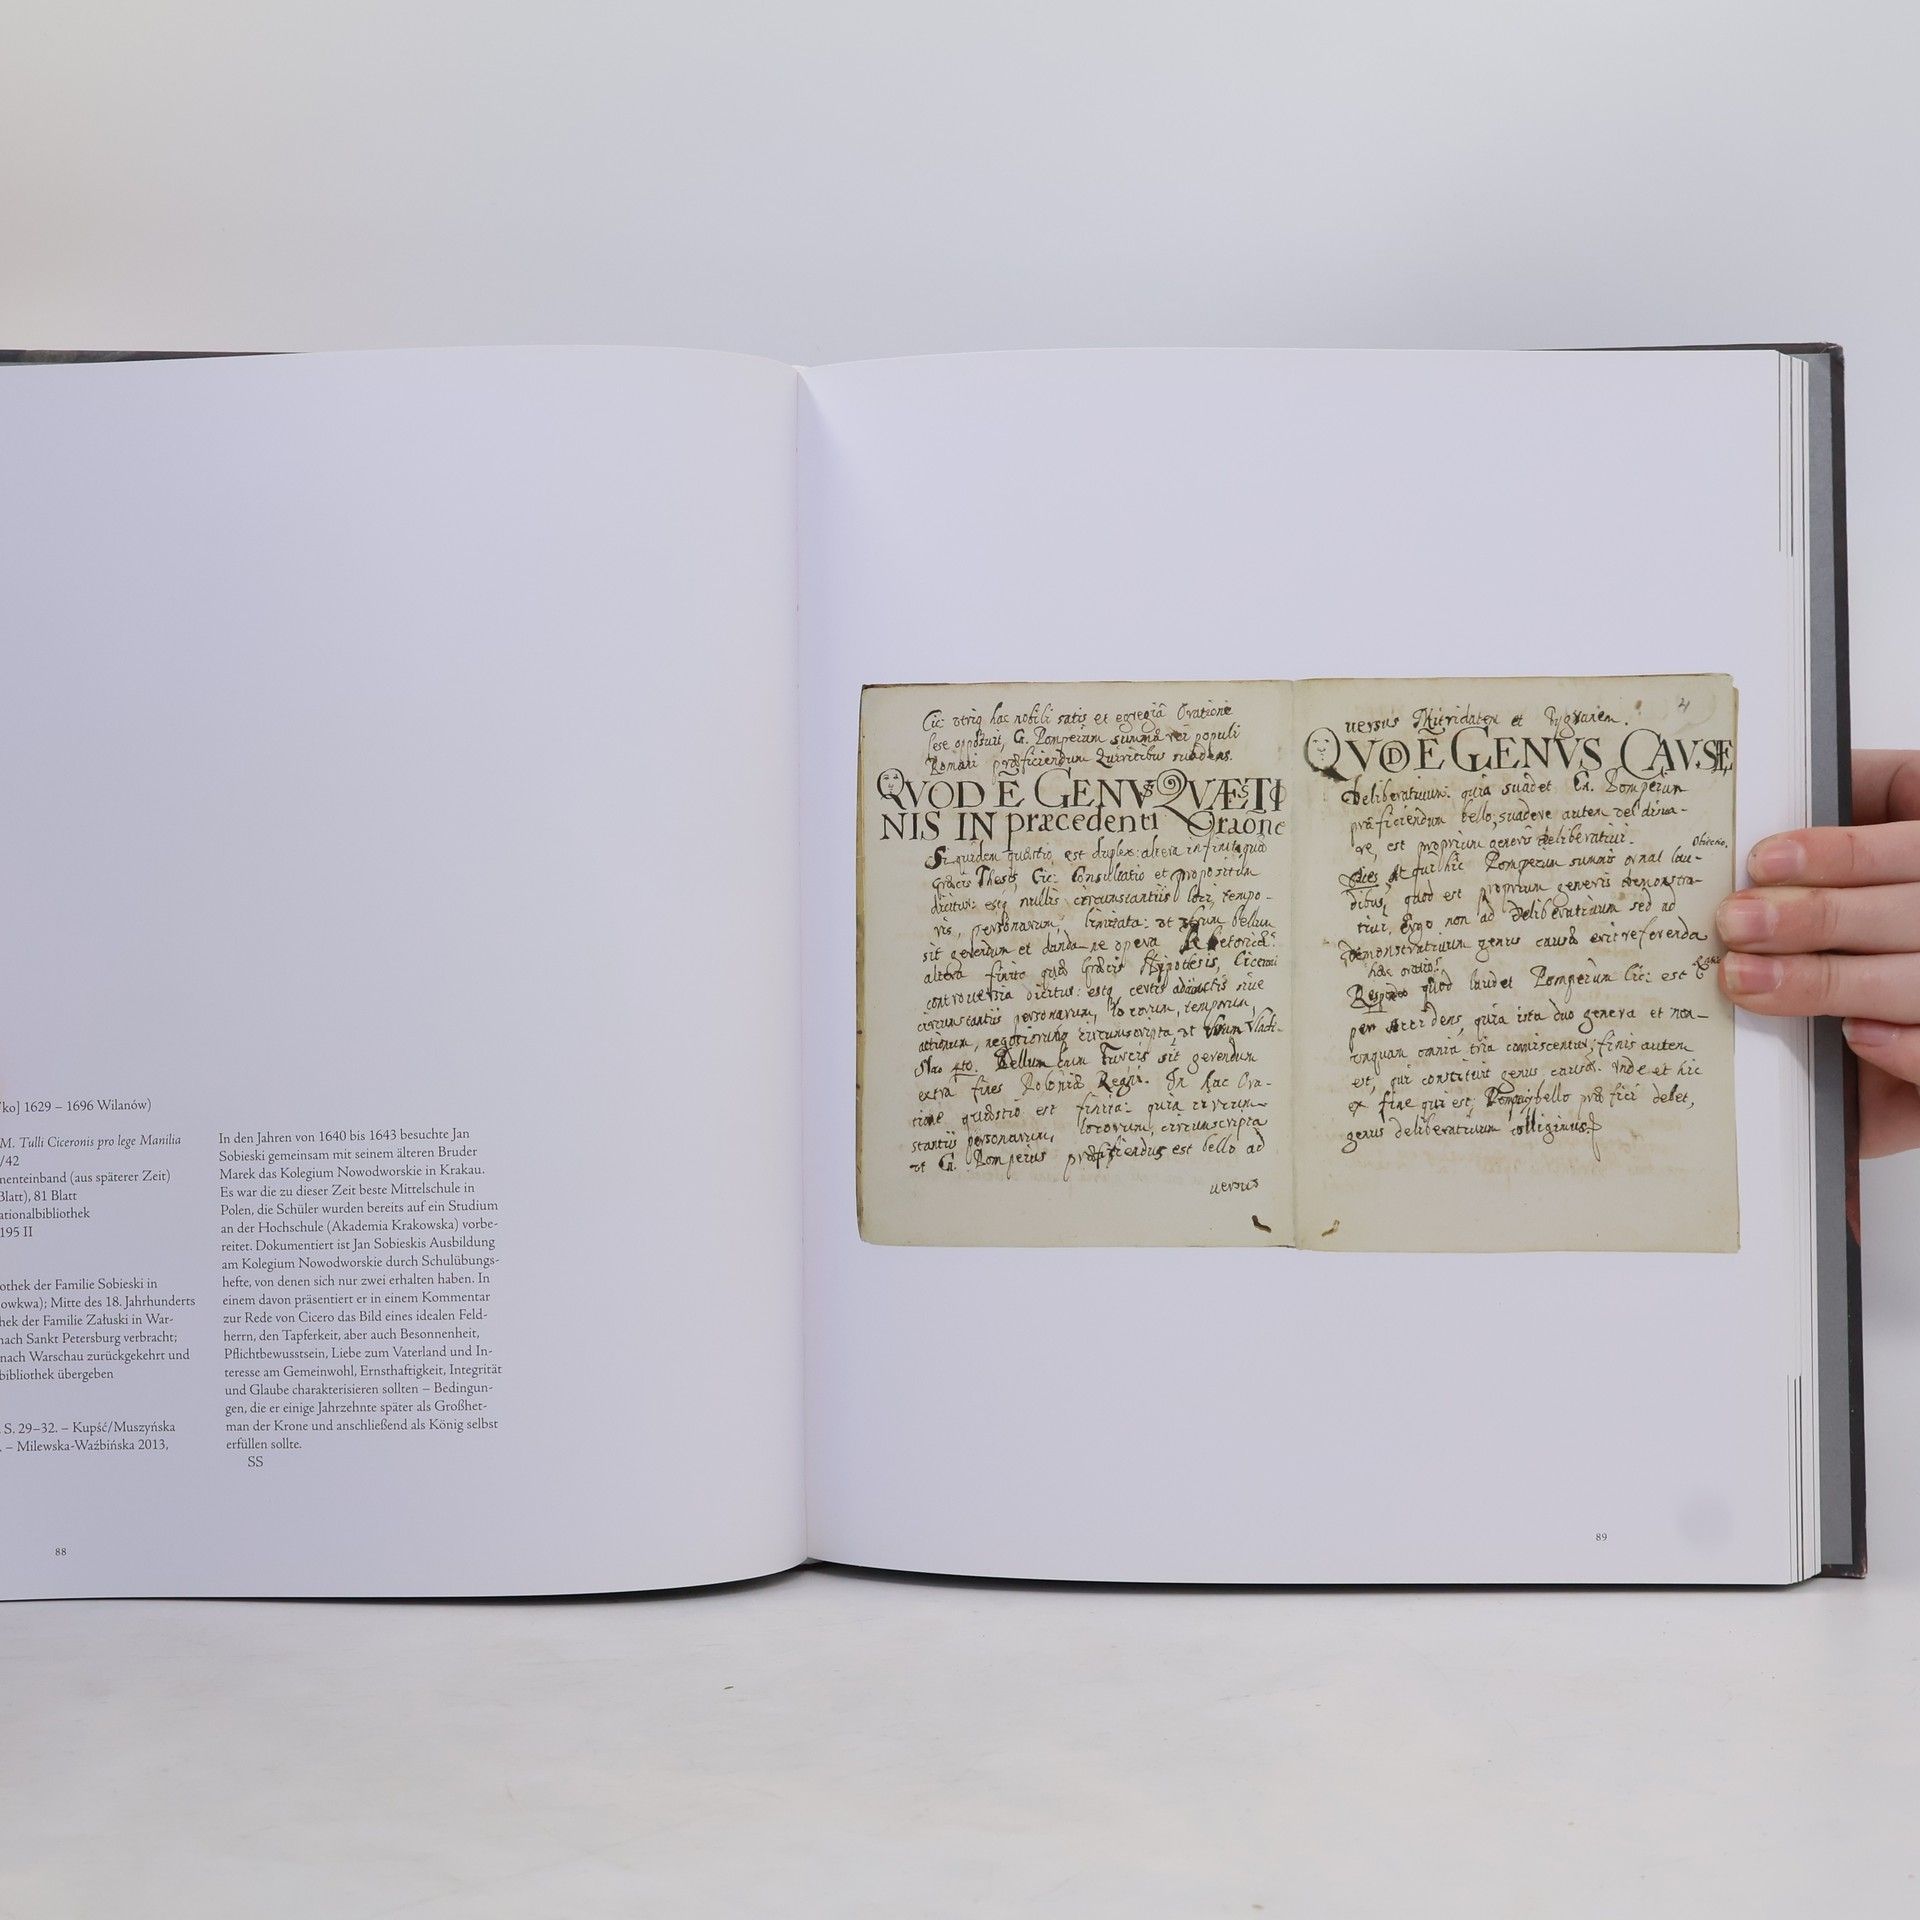 ko] 1629 – 1696 Wilanów)
M. Tulli Ciceronis pro lege Manilia
/42
nenteinband (aus späterer Zeit)
Blatt), 81 Blatt
ationalbibliothek
195 II
othek der Familie Sobieski in
owkwa); Mitte des 18. Jahrhunderts
hek der Familie Załuski in War-
nach Sankt Petersburg verbracht;
nach Warschau zurückgekehrt und
bibliothek übergeben
S. 29–32. – Kupść/Muszyńska
. – Milewska-Waźbińska 2013,
88
In den Jahren von 1640 bis 1643 besuchte Jan
Sobieski gemeinsam mit seinem älteren Bruder
Marek das Kolegium Nowodworskie in Krakau.
Es war die zu dieser Zeit beste Mittelschule in
Polen, die Schüler wurden bereits auf ein Studium
an der Hochschule (Akademia Krakowska) vorbe-
reitet. Dokumentiert ist Jan Sobieskis Ausbildung
am Kolegium Nowodworskie durch Schulübungs-
hefte, von denen sich nur zwei erhalten haben. In
einem davon präsentiert er in einem Kommentar
zur Rede von Cicero das Bild eines idealen Feld-
herrn, den Tapferkeit, aber auch Besonnenheit,
Pflichtbewusstsein, Liebe zum Vaterland und In-
teresse am Gemeinwohl, Ernsthaftigkeit, Integrität
und Glaube charakterisieren sollten – Bedingun-
gen, die er einige Jahrzehnte später als Großhet-
man der Krone und anschließend als König selbst
erfüllen sollte.
SS
Cic: utriq hac nobili satis et egregiâ Oratione
sese opposuit, G. Pompeium summæ rei populi
Romani præficiendum Quiritibus suadens.
QVOD E GENVS QVÆSTI
NIS IN præcedenti Oraone
Siquidem quæstio est duplex: altera infinita quæ
Græcis Thesis, Cic: Consultatio et propositum
dicitur: estq nullis circumstantiis loci, tempo-
ris, personarum, limitata: ut utrum bellum
sit gerendum et danda ne opera Rhetoricæ:
altera finita quæ Græcis Hypotesis, Ciceroni
controversia dicitur: estq certis adiunctis sive
circumstantiis personarum, locorum, temporum,
actionum, negotiorumq circumscripta, ut utrum Vladi-
slao 4to. Bellum cum Turcis sit gerendum
extra fines Poloniæ Regni. In hac Ora-
tione quæstio est finita: quia circum-
stantiis personarum, locorum, circumscripta
ut G. Pompeius præficiendus est bello ad
uersus
uersus Mitridatem et Tygranem.
4
QVOD E GENVS CAVSÆ
Deliberatiuum: quia suadet Cn. Pompeium
præficiendum bello, suadere autem vel disua-
re, est proprium generis deliberatiui.
Dices, At qui hic Pompeium summis ornat lau-
dibus, quod est proprium generis demonstra-
tiui. Ergo non ad Deliberatiuum sed ad
Demonstratiuum genus causæ erit referenda
hæc oratio.
Respondeo quod laudet Pompeium Cic: est
per accidens, quia ista duo genera et non-
unquam omnia tria comiscentur; finis autem
est, qui constituit genus causæ. Vnde et hic
ex fine qui est, Pompeius bello præfici debet,
genus deliberatiuum colligimus
89